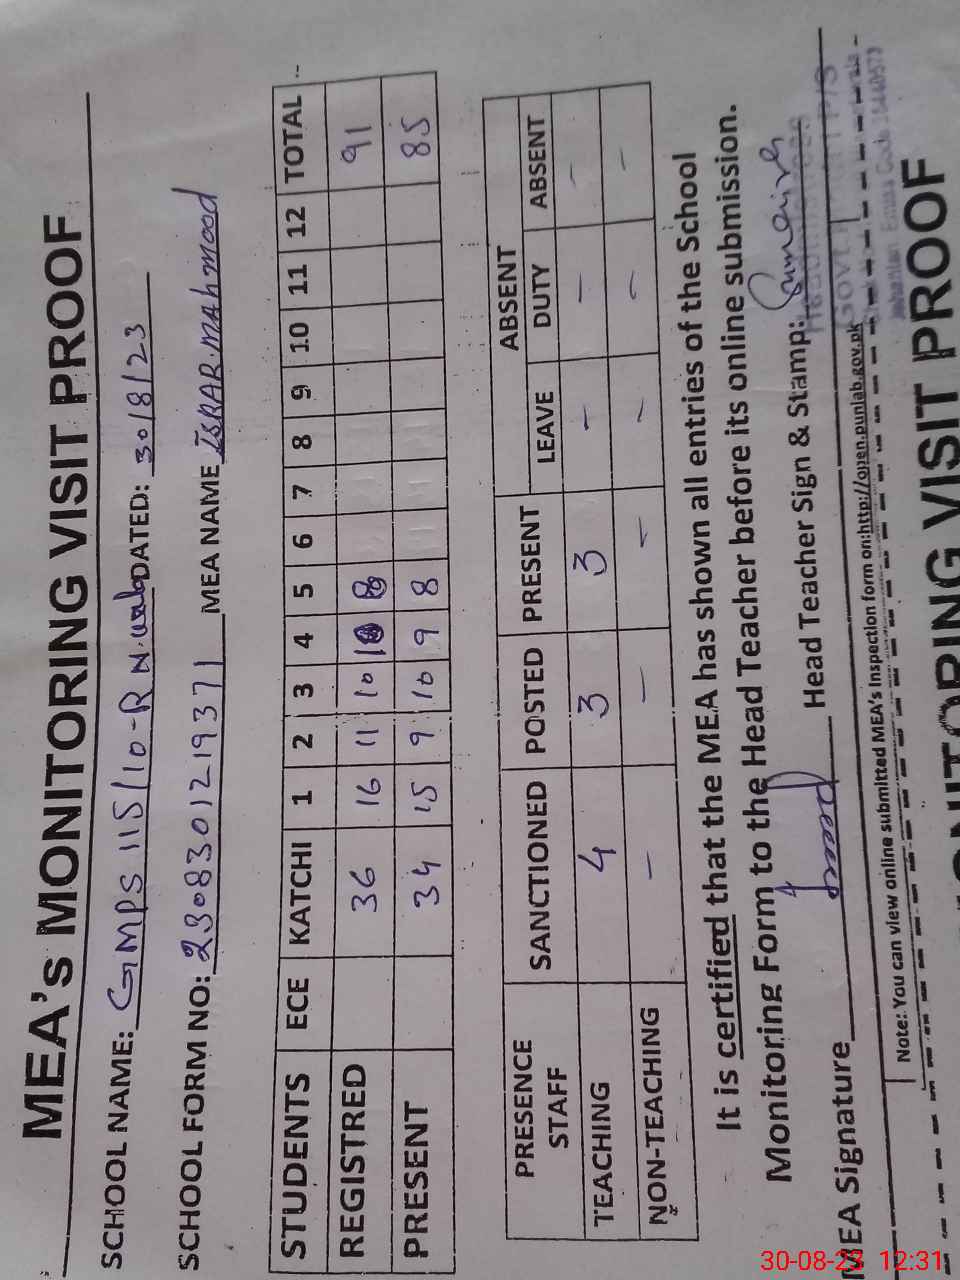 MEA's MONITORING VISIT PROOF
SCHOOL NAME: GMPS 115/10-R DATED: 30/8/23
SCHOOL FORM NO: 2308301219371 MEA NAME ISRAR.MAHMOOD
STUDENTS ECE KATCHI 1 2 3 4 5 6 7 8 9 10 11 12 TOTAL
REGISTRED 36 16 11 10 10 8 91
PRESENT 34 15 9 10 9 8 85
PRESENCE STAFF SANCTIONED POSTED PRESENT ABSENT
LEAVE DUTY ABSENT
TEACHING 4 3 3 - - -
NON-TEACHING - - - - - -
It is certified that the MEA has shown all entries of the School
Monitoring Form to the Head Teacher before its online submission.
MEA Signature Head Teacher Sign & Stamp: Sumaira
Note: You can view online submitted MEA's Inspection form on:http://open.punjab.gov.pk
MONITORING VISIT PROOF
30-08-23 12:31